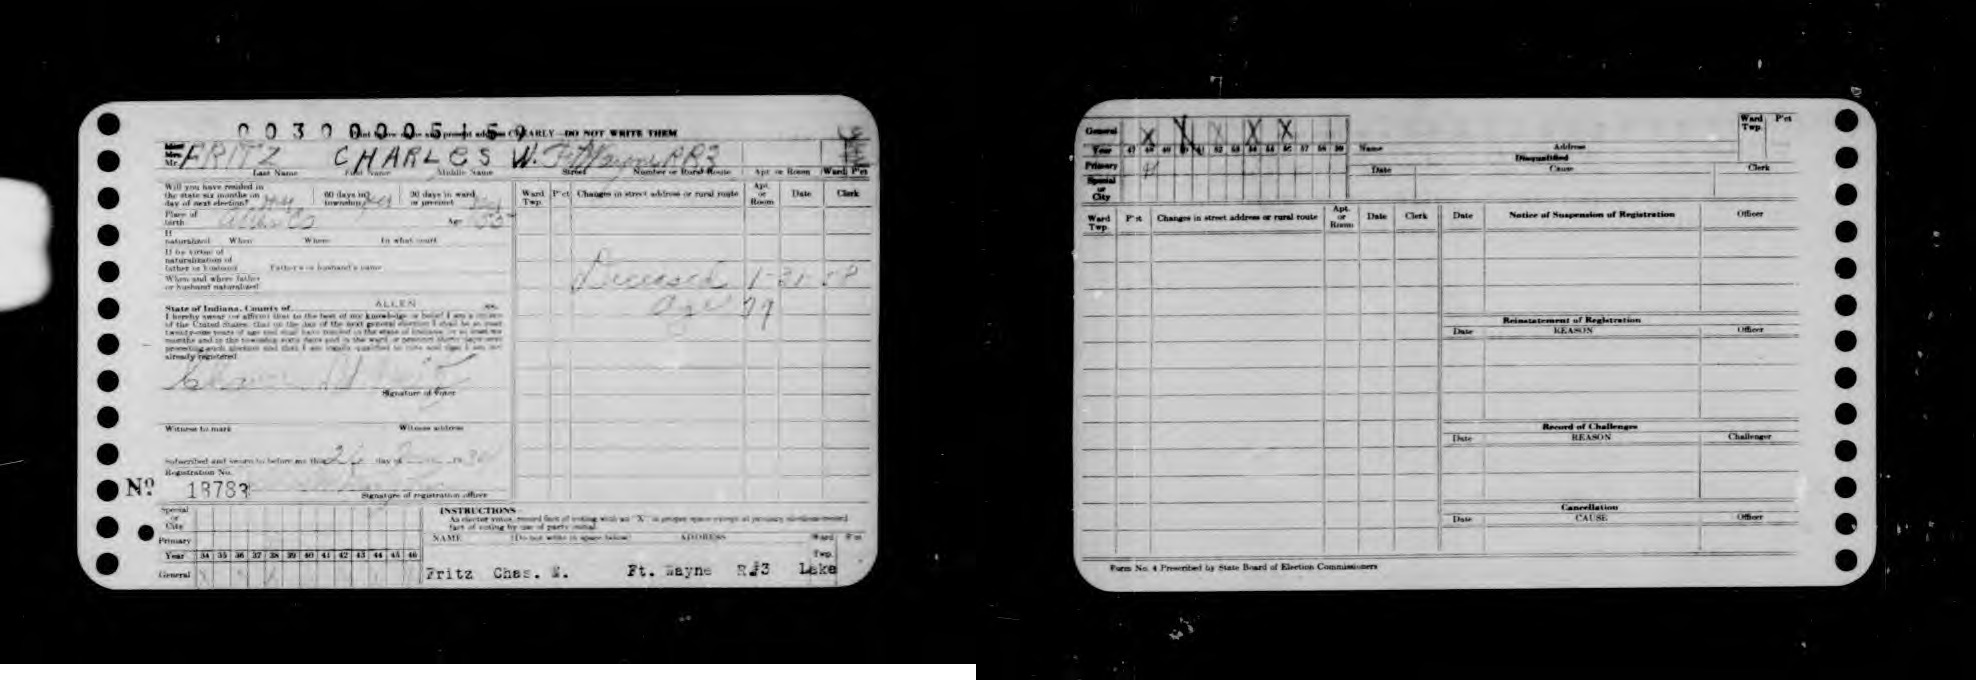 0030000515
CLEARLY—DO NOT WRITE THEM
Mr. FRITZ CHARLES W. Ft Wayne RR3
Last Name First Name Middle Name Street Number or Rural Route Apt or Room Ward P'ct
Will you have resided in
the state six months on
day of next election? yes
60 days in
township yes
30 days in ward
or precinct yes
Place of
birth Allen Co Age 55
If
naturalized When Where In what court
If by virtue of
naturalization of
father or husband Father's or husband's name
When and where father
or husband naturalized
State of Indiana, County of ALLEN ss.
I hereby swear (or affirm) that to the best of my knowledge or belief I am a citizen
of the United States; that on the day of the next general election I shall be at least
twenty-one years of age and shall have resided in the state of Indiana, for at least six
months and in the township sixty days and in the ward or precinct thirty days next
preceding such election and that I am legally qualified to vote and that I am not
already registered
Signature of Voter
Witness to mark Witness address
Subscribed and sworn to before me this 26 day of
Registration No.
No. 13783
Signature of registration officer
Special
or
City
Primary
Year 34 35 36 37 38 39 40 41 42 43 44 45 46
General
Ward
Twp. P'ct Changes in street address or rural route Apt.
or
Room Date Clerk
Deceased 1-31-58
age 79
INSTRUCTIONS
As elector votes, record fact of voting with an "X" in proper space except at primary elections record
fact of voting by use of party initial.
NAME (Do not write in space below) ADDRESS Ward P'ct
Twp.
Fritz Chas. W. Ft. Wayne R#3 Lake
General X X X X X
Year 47 48 49 50 51 52 53 54 55 56 57 58 59
Primary
Special
or
City
Ward
Twp. P'ct
Name Address
Disqualified
Date Cause Clerk
Ward
Twp. P'ct Changes in street address or rural route Apt.
or
Room Date Clerk
Date Notice of Suspension of Registration Officer
Reinstatement of Registration
Date REASON Officer
Record of Challenges
Date REASON Challenger
Cancellation
Date CAUSE Officer
Form No. 4 Prescribed by State Board of Election Commissioners